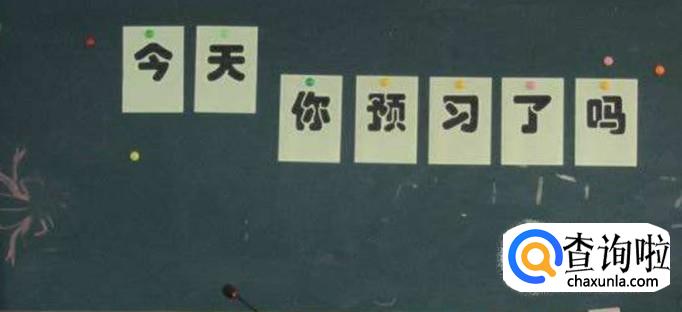 今天
你预习了吗
查询啦
chaxunla.com